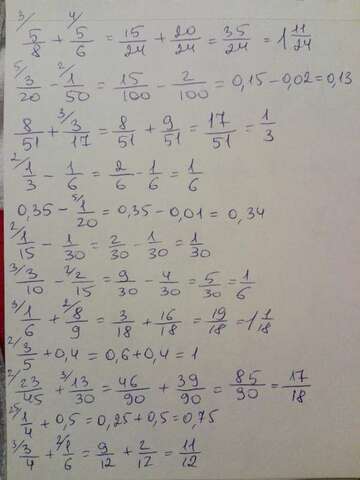 3/ 5/8 + 4/ 5/6 = 15/24 + 20/24 = 35/24 = 1 11/24
5/ 3/20 - 2/ 1/50 = 15/100 - 2/100 = 0,15 - 0,02 = 0,13
8/51 + 3/ 3/17 = 8/51 + 9/51 = 17/51 = 1/3
2/ 1/3 - 1/6 = 2/6 - 1/6 = 1/6
0,35 - 5/ 1/20 = 0,35 - 0,01 = 0,34
2/ 1/15 - 1/30 = 2/30 - 1/30 = 1/30
3/ 3/10 - 2/ 2/15 = 9/30 - 4/30 = 5/30 = 1/6
3/ 1/6 + 2/ 8/9 = 3/18 + 16/18 = 19/18 = 1 1/18
2/ 3/5 + 0,4 = 0,6 + 0,4 = 1
2/ 23/45 + 3/ 13/30 = 46/90 + 39/90 = 85/90 = 17/18
25/ 1/4 + 0,5 = 0,25 + 0,5 = 0,75
3/ 3/4 + 2/ 1/6 = 9/12 + 2/12 = 11/12